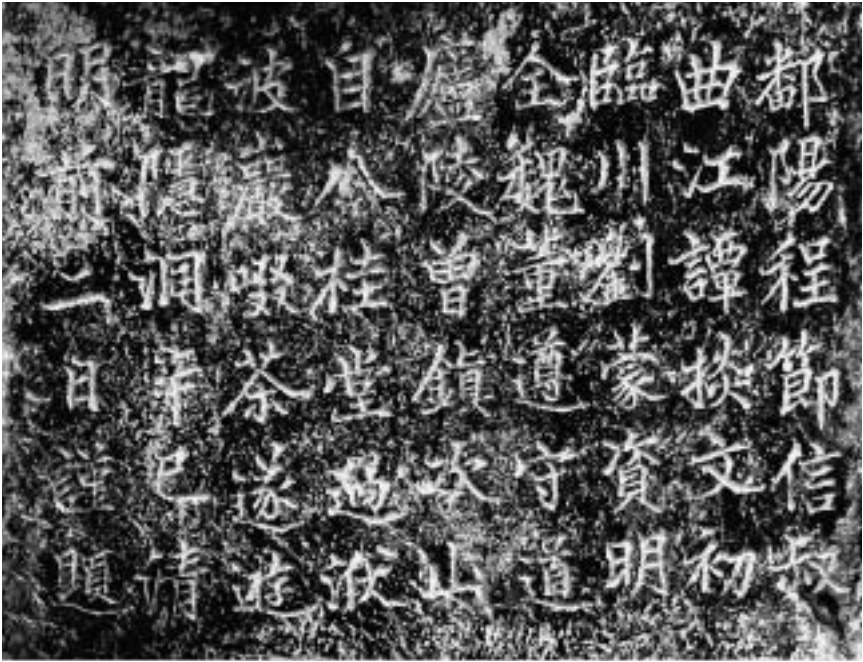 鄱陽程節信叔
曲江譚掞文初
臨川劉蒙資明
全魏董遵守道
廬陵曾鎮次山
自八桂堂過洑
波巖啜茶遂遊
龍隱洞辛巳清
明前二日謹題